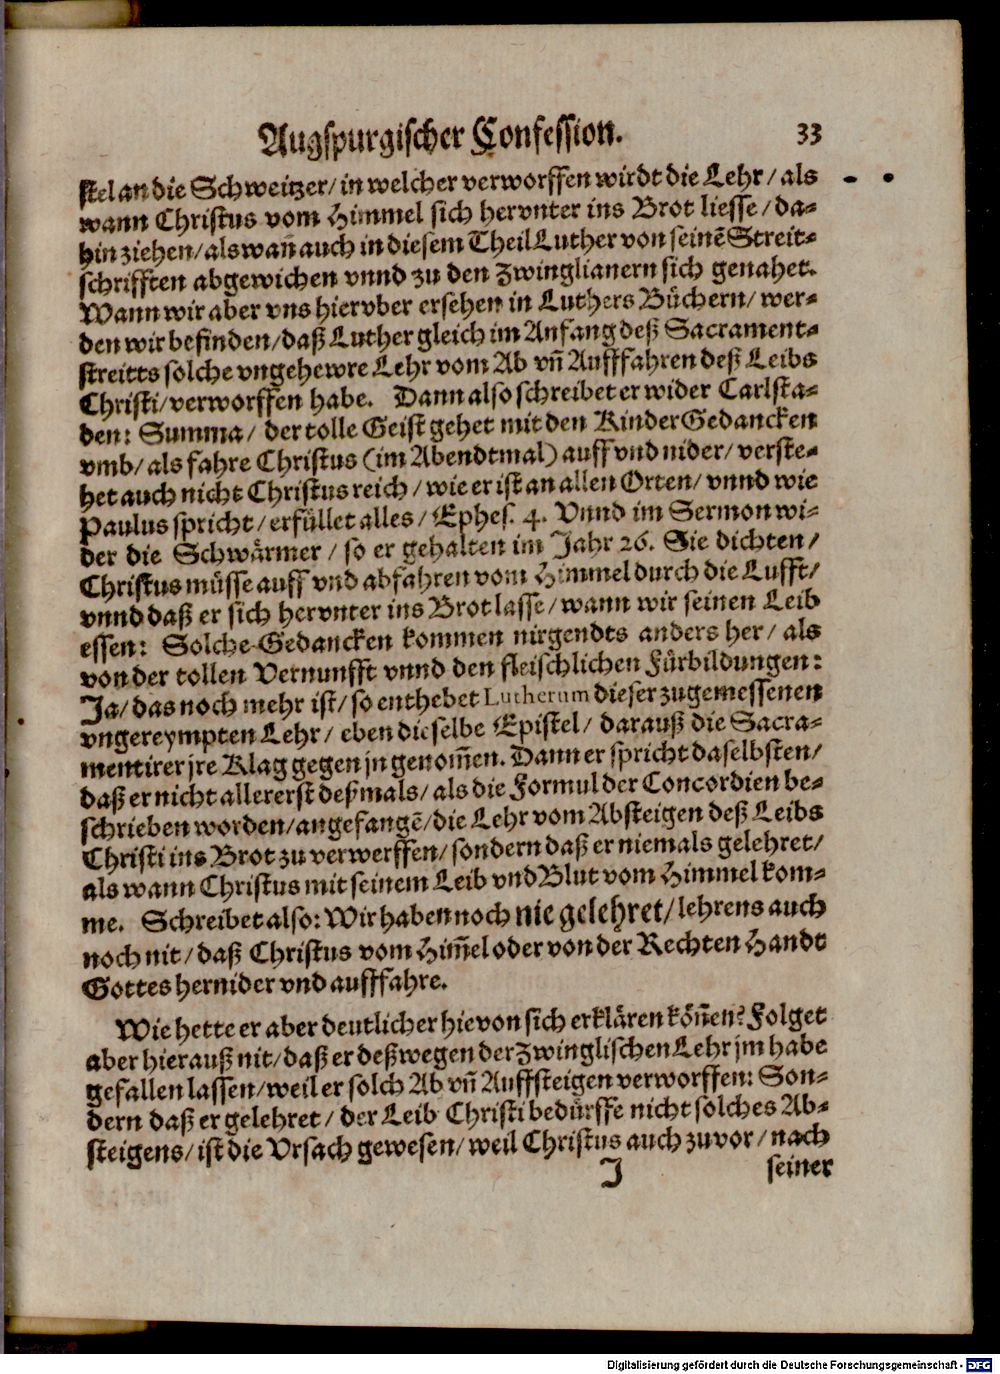 Augspurgischer Confession. 33
stel an die Schweitzer/ in welcher verworffen wirdt die Lehr/ als
wann Christus vom Himmel sich hervnter ins Brot liesse/ da-
hin ziehen/ als wañ auch in diesem Theil Luther von seinē Streit-
schrifften abgewichen vnnd zu den Zwinglianern sich genahet.
Wann wir aber vns hiervber ersehen in Luthers Büchern/ wer-
den wir befinden/ daß Luther gleich im Anfang deß Sacrament-
streitts solche vngehewre Lehr vom Ab vñ Aufffahren deß Leibs
Christi/ verworffen habe. Dann also schreibet er wider Carlsta-
den: Summa/ der tolle Geist gehet mit den KinderGedancken
vmb/ als fahre Christus (im Abendtmal) auff vnd nider/ verste-
het auch nicht Christus reich/ wie er ist an allen Orten/ vnnd wie
Paulus spricht/ erfüllet alles/ Ephes. 4. Vnnd im Sermon wi-
der die Schwärmer/ so er gehalten im Jahr 26. Sie dichten/
Christus müsse auff vnd abfahren vom Himmel durch die Lufft/
vnnd daß er sich hervnter ins Brot lasse/ wann wir seinen Leib
essen: Solche Gedancken kommen nirgendts anders her/ als
von der tollen Vernunfft vnnd den fleischlichen Fürbildungen:
Ja/ das noch mehr ist/ so enthebet Lutherum dieser zugemessenen
vngereympten Lehr/ eben dieselbe Epistel/ darauß die Sacra-
mentirer jre Klag gegen jn genom̃en. Dann er spricht daselbsten/
daß er nicht allererst deßmals/ als die Formul der Concordien be-
schrieben worden/ angefangē/ die Lehr vom Absteigen deß Leibs
Christi ins Brot zu verwerffen/ sondern daß er niemals gelehret/
als wann Christus mit seinem Leib vnd Blut vom Himmel kom-
me. Schreibet also: Wir haben noch nie gelehret/ lehrens auch
noch nit/ daß Christus vom Him̃el oder von der Rechten Handt
Gottes hernider vnd aufffahre.
Wie hette er aber deutlicher hievon sich erklären köñen? Folget
aber hierauß nit/ daß er deßwegen der Zwinglischen Lehr jm habe
gefallen lassen/ weil er solch Ab vñ Auffsteigen verworffen: Son-
dern daß er gelehret/ der Leib Christi bedürffe nicht solches Ab-
steigens/ ist die Vrsach gewesen/ weil Christus auch zuvor/ nach
J seiner
Digitalisierung gefördert durch die Deutsche Forschungsgemeinschaft - DFG